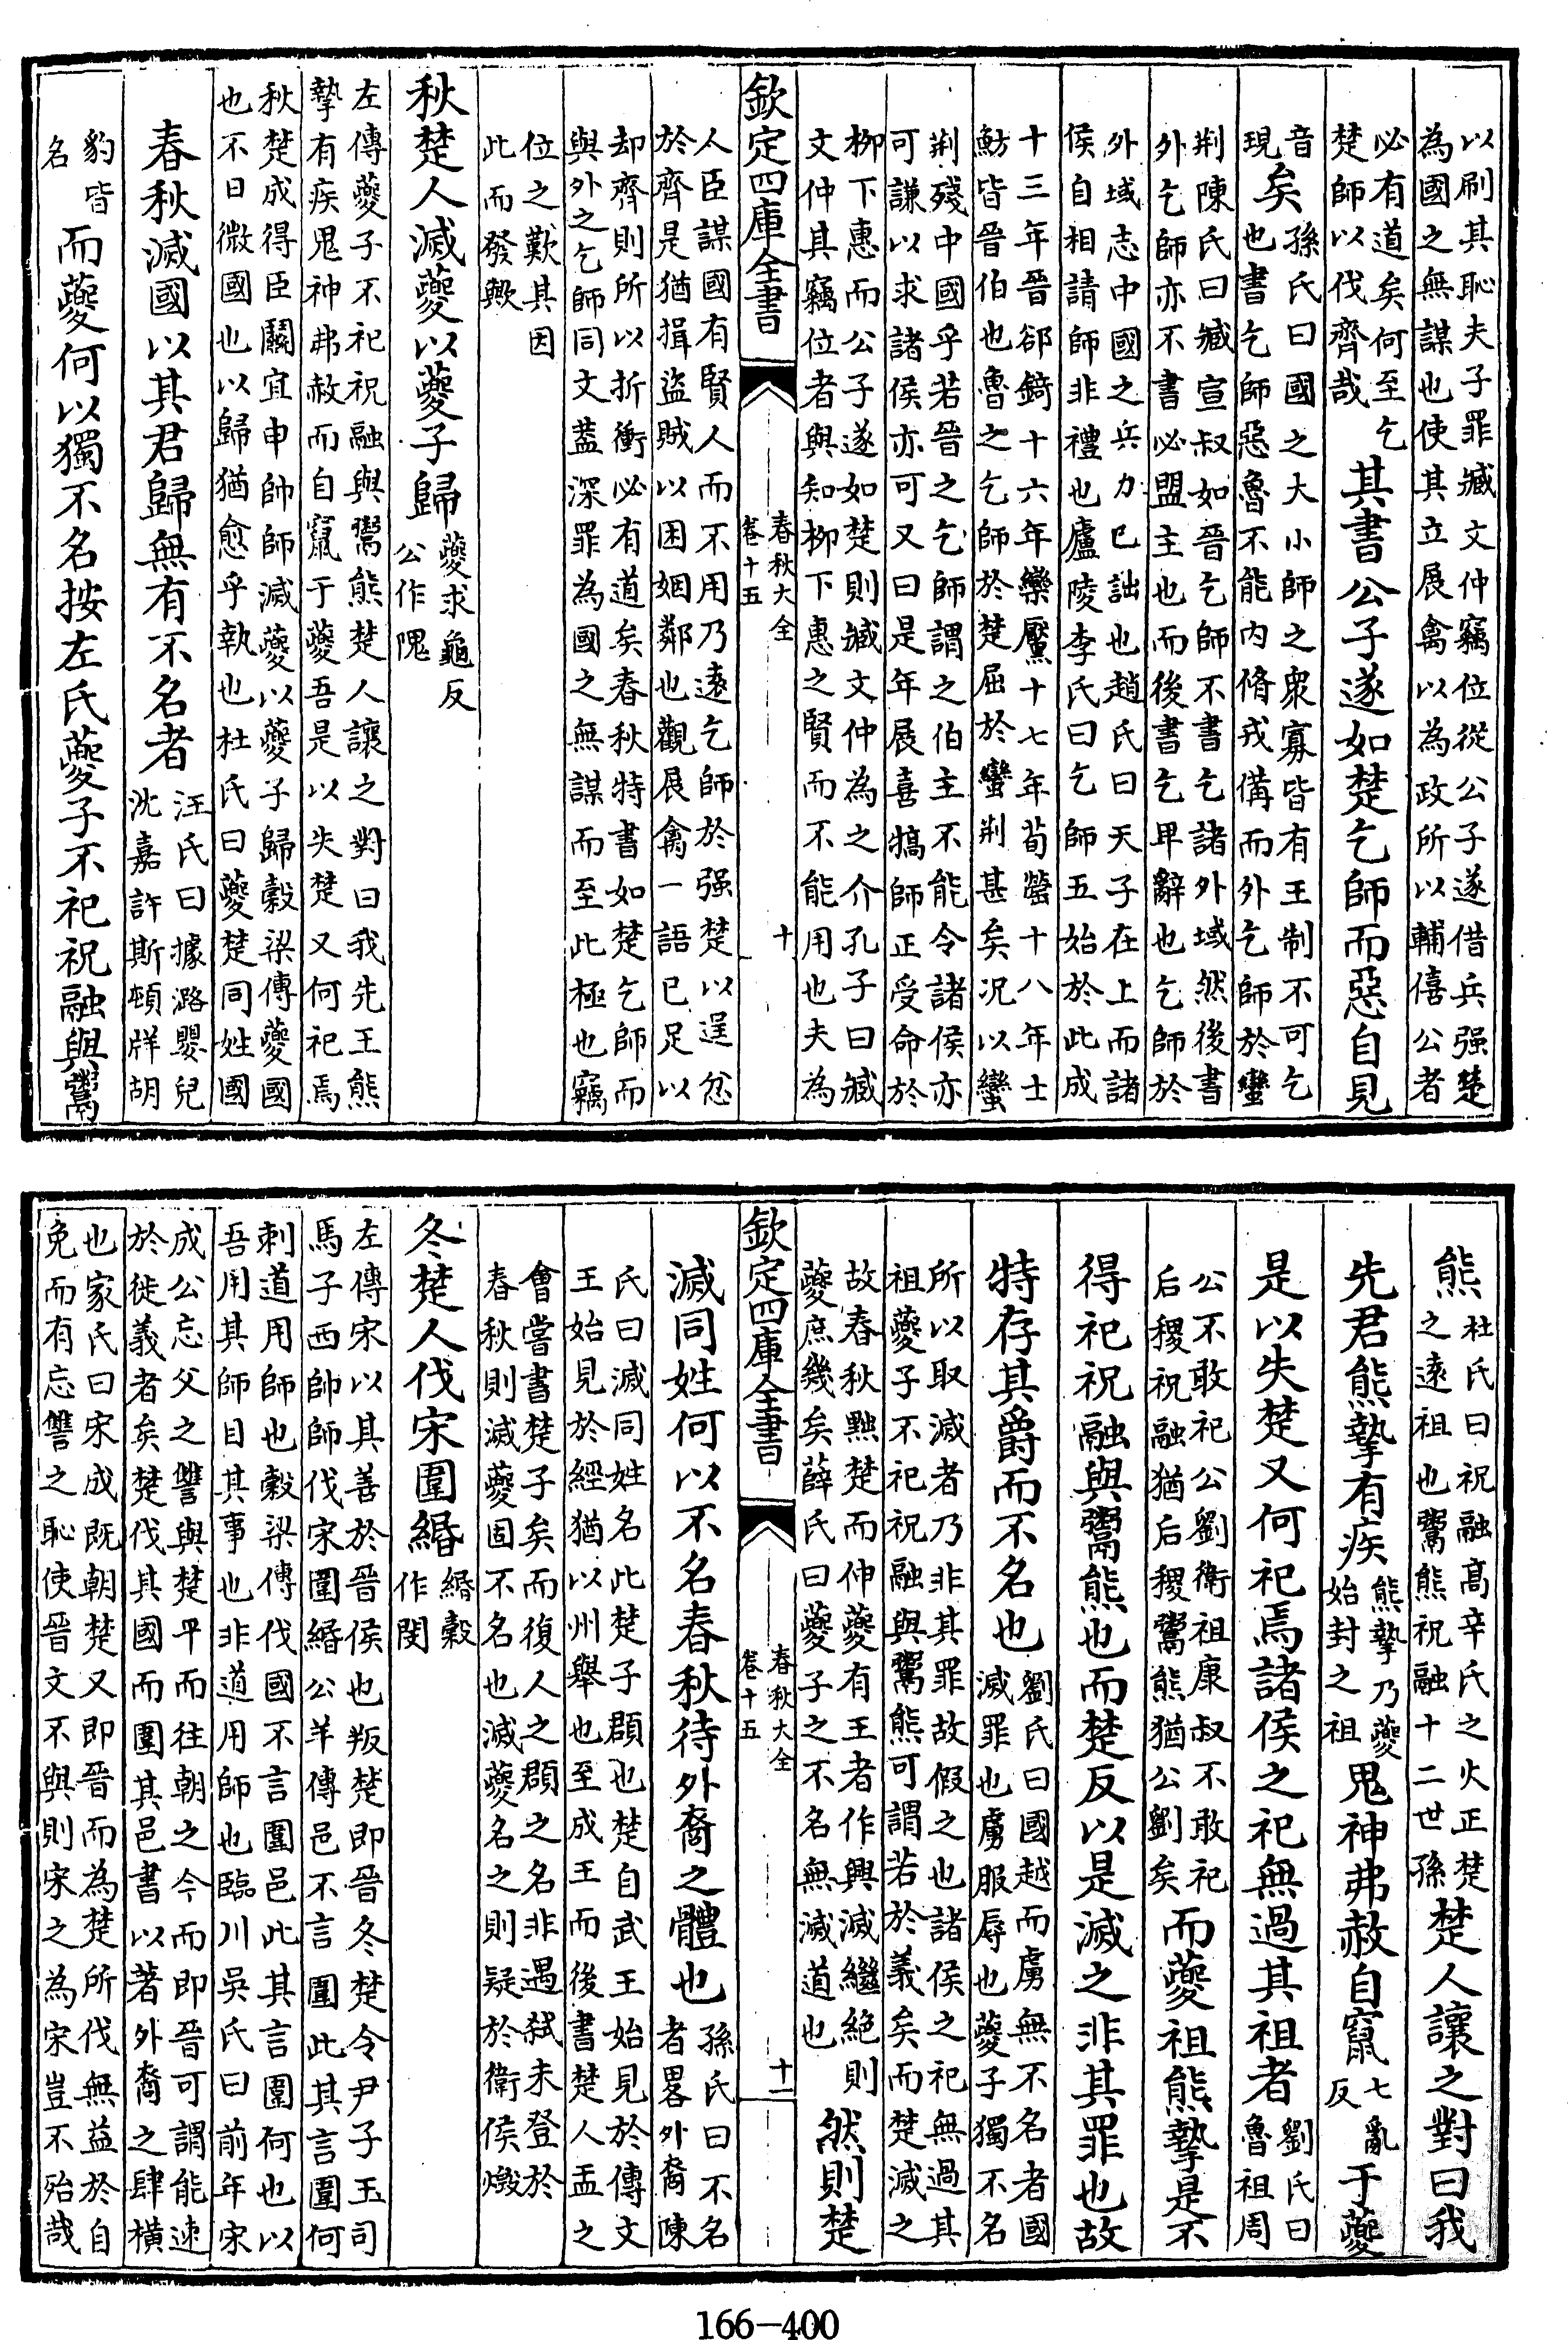 以刷其恥夫子罪臧文仲竊位從公子遂借兵强楚
為國之無謀也使其立展禽以為政所以輔僖公者
必有道矣何至乞
楚師以伐齊哉
其書公子遂如楚乞師而惡自見
音
現
矣
孫氏曰國之大小師之衆寡皆有王制不可乞
也書乞師惡魯不能内脩戎備而外乞師於蠻
荆陳氏曰臧宣叔如晉乞師不書乞諸外域然後書
外乞師亦不書必盟主也而後書乞卑辭也乞師於
外域志中國之兵力已詘也趙氏曰天子在上而諸
侯自相請師非禮也廬陵李氏曰乞師五始於此成
十三年晉郤錡十六年欒黶十七年荀罃十八年士
魴皆晉伯也魯之乞師於楚屈於蠻荆甚矣况以蠻
荆殘中國乎若晉之乞師謂之伯主不能令諸侯亦
可謙以求諸侯亦可又曰是年展喜犒師正受命於
柳下惠而公子遂如楚則臧文仲為之介孔子曰臧
文仲其竊位者與知柳下惠之賢而不能用也夫為
欽定四庫全書
春秋大全
卷十五
十
人臣謀國有賢人而不用乃遠乞師於强楚以逞忿
於齊是猶揖盜賊以困姻鄰也觀展禽一語已足以
却齊則所以折衝必有道矣春秋特書如楚乞師而
與外之乞師同文葢深罪為國之無謀而至此極也竊
位之歎其因
此而發歟
秋楚人滅夔以夔子歸
夔求龜反
公作隗
左傳夔子不祀祝融與鬻熊楚人讓之對曰我先王熊
摯有疾鬼神弗赦而自竄于夔吾是以失楚又何祀焉
秋楚成得臣鬭宜申帥師滅夔以夔子歸穀梁傳夔國
也不日微國也以歸猶愈乎執也杜氏曰夔楚同姓國
春秋滅國以其君歸無有不名者
汪氏曰據潞嬰兒
沈嘉許斯頓牂胡
豹皆
名
而夔何以獨不名按左氏夔子不祀祝融與鬻
熊
杜氏曰祝融高辛氏之火正楚
之遠祖也鬻熊祝融十二世孫
楚人讓之對曰我
先君熊摯有疾
熊摯乃夔
始封之祖
鬼神弗赦自竄
七亂
反
于夔
是以失楚又何祀焉諸侯之祀無過其祖者
劉氏曰
魯祖周
公不敢祀公劉衛祖康叔不敢祀
后稷祝融猶后稷鬻熊猶公劉矣
而夔祖熊摯是不
得祀祝融與鬻熊也而楚反以是滅之非其罪也故
特存其爵而不名也
劉氏曰國越而虜無不名者國
滅罪也虜服辱也夔子獨不名
所以取滅者乃非其罪故假之也諸侯之祀無過其
祖夔子不祀祝融與鬻熊可謂若於義矣而楚滅之
故春秋黜楚而伸夔有王者作興滅繼絶則
夔庶幾矣薛氏曰夔子之不名無滅道也
然則楚
欽定四庫全書
春秋大全
卷十五
十一
滅同姓何以不名春秋待外裔之體也
孫氏曰不名
者畧外裔陳
氏曰滅同姓名此楚子頵也楚自武王始見於傳文
王始見於經猶以州舉也至成王而後書楚人盂之
會嘗書楚子矣而復人之頵之名非遇弑未登於
春秋則滅夔固不名也滅夔名之則疑於衛侯燬
冬楚人伐宋圍緡
緡穀
作閔
左傳宋以其善於晉侯也叛楚即晉冬楚令尹子玉司
馬子西帥師伐宋圍緡公羊傳邑不言圍此其言圍何
刺道用師也穀梁傳伐國不言圍邑此其言圍何也以
吾用其師目其事也非道用師也臨川吳氏曰前年宋
成公忘父之讐與楚平而往朝之今而即晉可謂能速
於徙義者矣楚伐其國而圍其邑書以著外裔之肆橫
也家氏曰宋成既朝楚又即晉而為楚所伐無益於自
免而有忘讐之恥使晉文不與則宋之為宋豈不殆哉
166-400